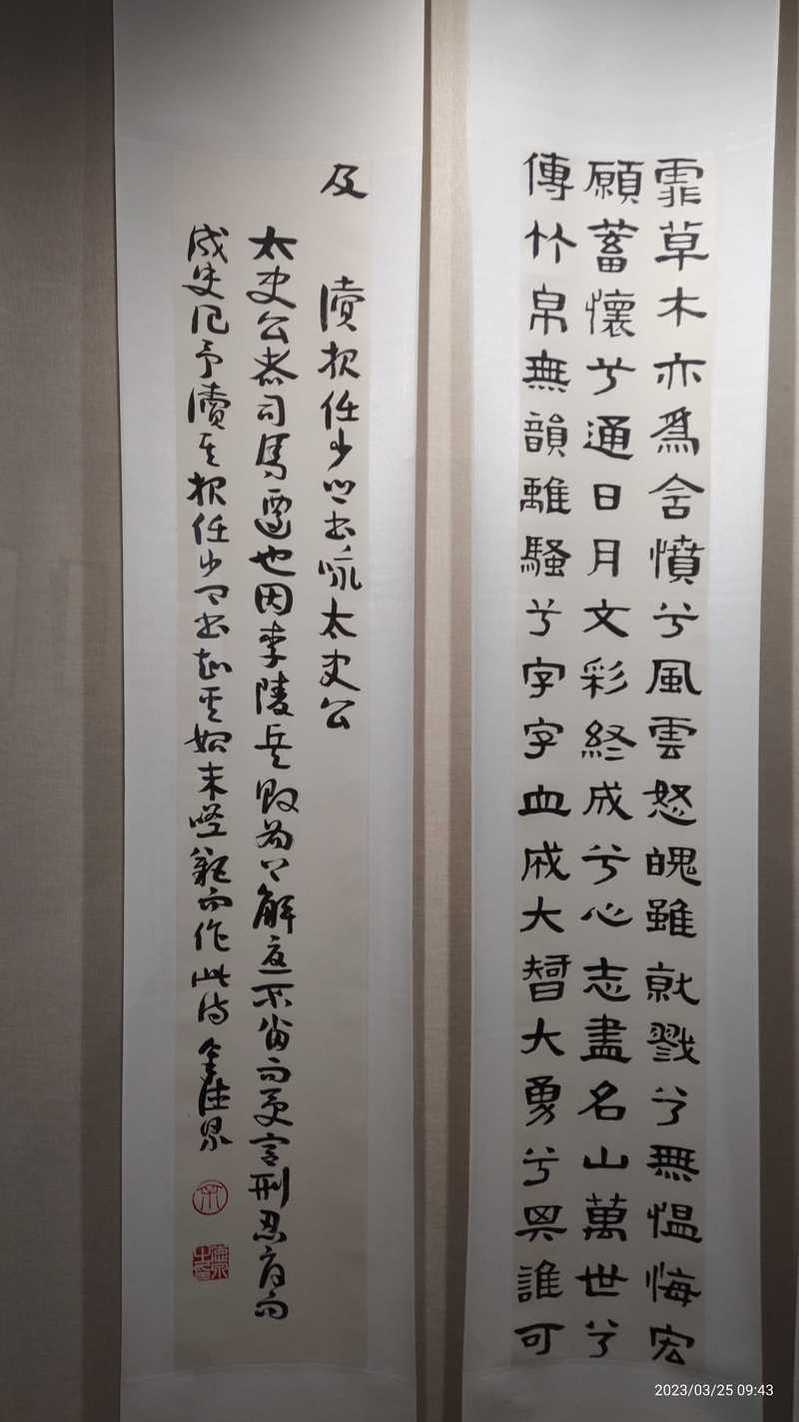 霏草木亦爲舍憤兮風雲怒魄雖就戮兮無愠悔宏
願蓄懷兮通日月文彩終成兮心志盡名山萬世兮
傳竹帛無韻離騷兮字字血戚大朁大勇兮異誰可
及 讀报任少卿书咏太史公
太史公者司馬遷也因李陵兵敗为之解 不 而受宫刑忍 而
成史记予讀其报任少卿书 其始末 而作此诗 金德
2023/03/25 09:43